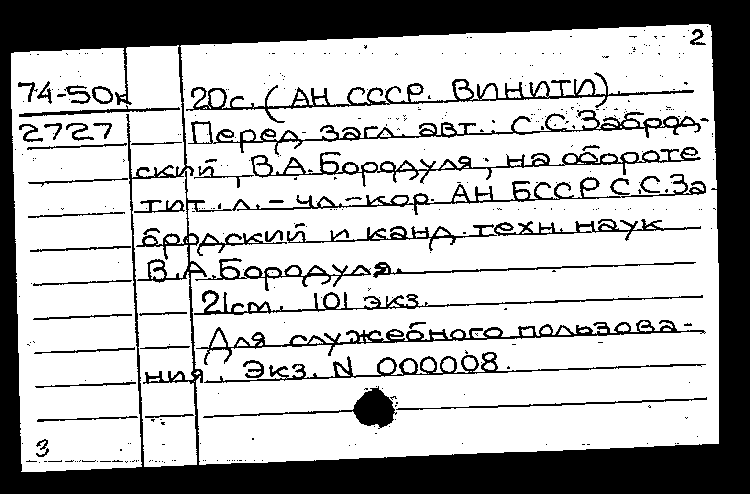 2
74-50к 20с. (АН СССР. ВИНИТИ).
2727 Перед загл. авт.: С.С.Заброд-
ский, В.А.Бородуля; на обороте
тит. л. - чл.-кор. АН БССР С.С.За-
бродский и канд. техн. наук
В.А.Бородуля.
21см. 101 экз.
Для служебного пользова-
ния. Экз. N 000008.
3